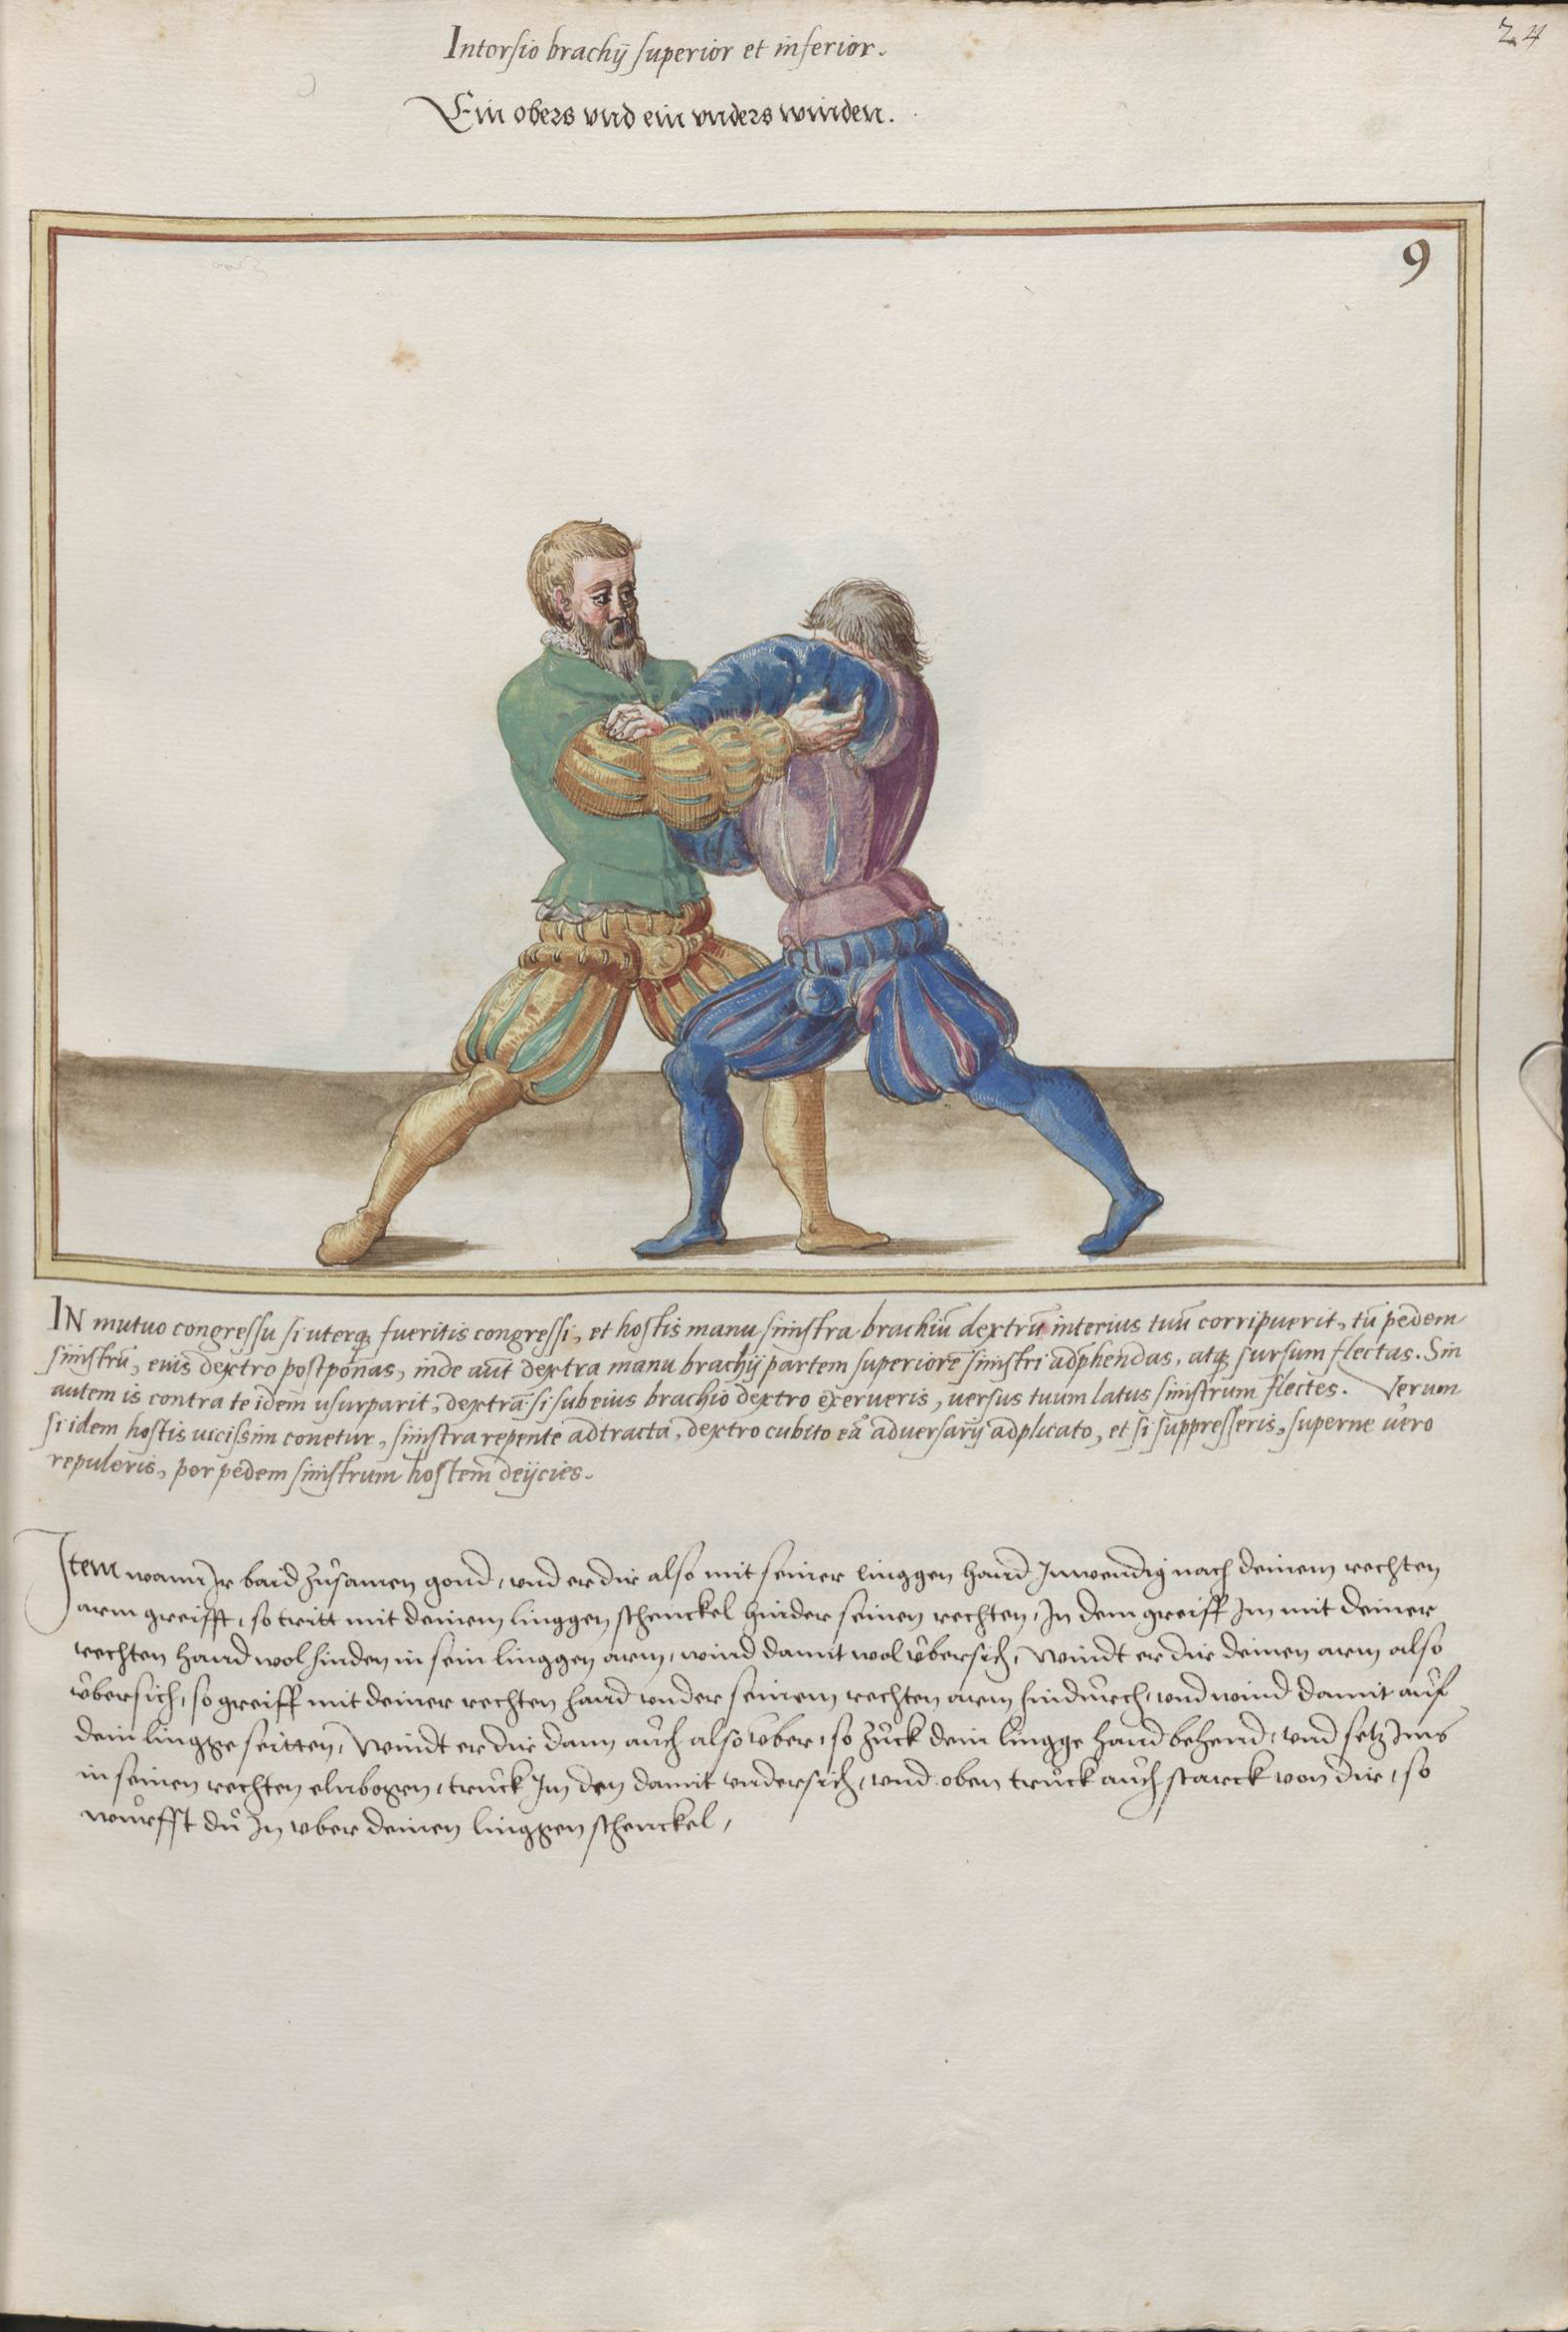 24
Intorsio brachij superior et inferior.
Ein obers vnd ein vnders winden.
9
IN mutuo congressu si uterq; fueritis congressi, et hostis manu sinistra brachiū dextrū interius tuū corripuerit, tū pedem
sinistrū, eius dextro postponas, inde aūt dextra manu brachij partem superiorē sinistri adphendas, atq; sursum flectas. Sin
autem is contra te idem usurparit, dextrā si sub eius brachio dextro exerueris, versus tuum latus sinistrum flectes. Verum
si idem hostis uicissim conetur, sinistra repente adtracta, dextro cubito eā adversarij adplicato, et si suppresseris, superne uero
repuleris, per pedem sinistrum hostem deijcies.
Item wann Ir baid zůsamen gond, vnd er dir also mit seiner linggen hand Inwendig nach deinem rechten
arm greifft, so tritt mit deinem linggen schenckel hinder seinen rechten, In dem greiff Im mit deiner
rechten hand wol hinden in sein linggen arm, wind damit wol v̊bersich, Windt er dir deinen arm also
v̊bersich, so greiff mit deiner rechten hand vnder seinem rechten arm hindůrch, vnd wind damit aůf
dein lingge seitten, Windt er dir dann aůch also v̊ber, so zůck dein lingge hand behend, vnd setz Ims
in seinen rechten elnbogen, trůck Im den damit vndersich, vnd oben trůck aůch starck von dir, so
wůrfft dů In vber deinen linggen schenckel,